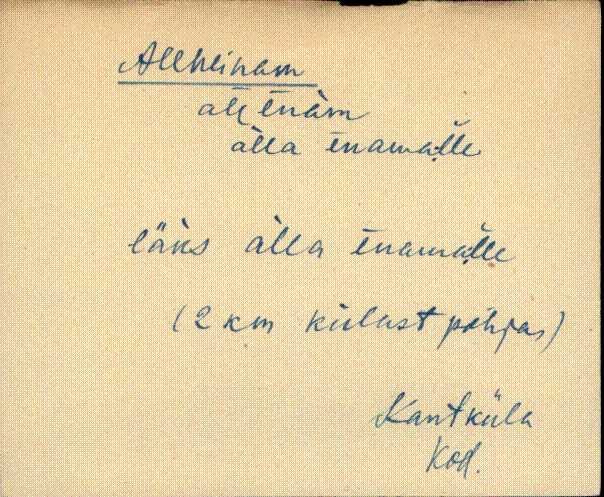 Allheinam
all īnàm
àlla īnamàlle
läks àlla īnamàlle
(2 km külast põhjas)
Kantküla
Kod.